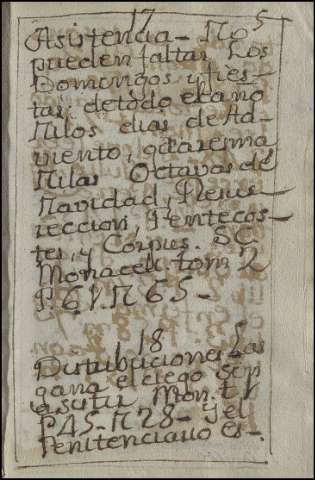 17 5
Asistencia - No
pueden faltar los
Domingos y fies-
tas de todo el año
Ni los dias de Ad-
viento, quaresma
Ni las Octavas de
Navidad, Resur-
reccion, Pentecos-
tes, y Corpus. SC
Monaceli tom 2
P. 6 V. N 65 -
18 5
Distribuciones las
gana el ciego
Mon. t
PAS. N 28 - y el
Penitenciario es -